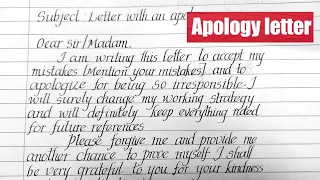 Apology letter
Subject : Letter with an apol
Dear sir/Madam,
I am writing this letter to accept my
mistakes [Mention your mistakes] and to
apologize for being so irresponsible. I
will surely change my working strategy
and will definitely keep everything noted
for future references
Please forgive me and provide me
another chance to prove myself. I shall
be very grateful to you for your kindness